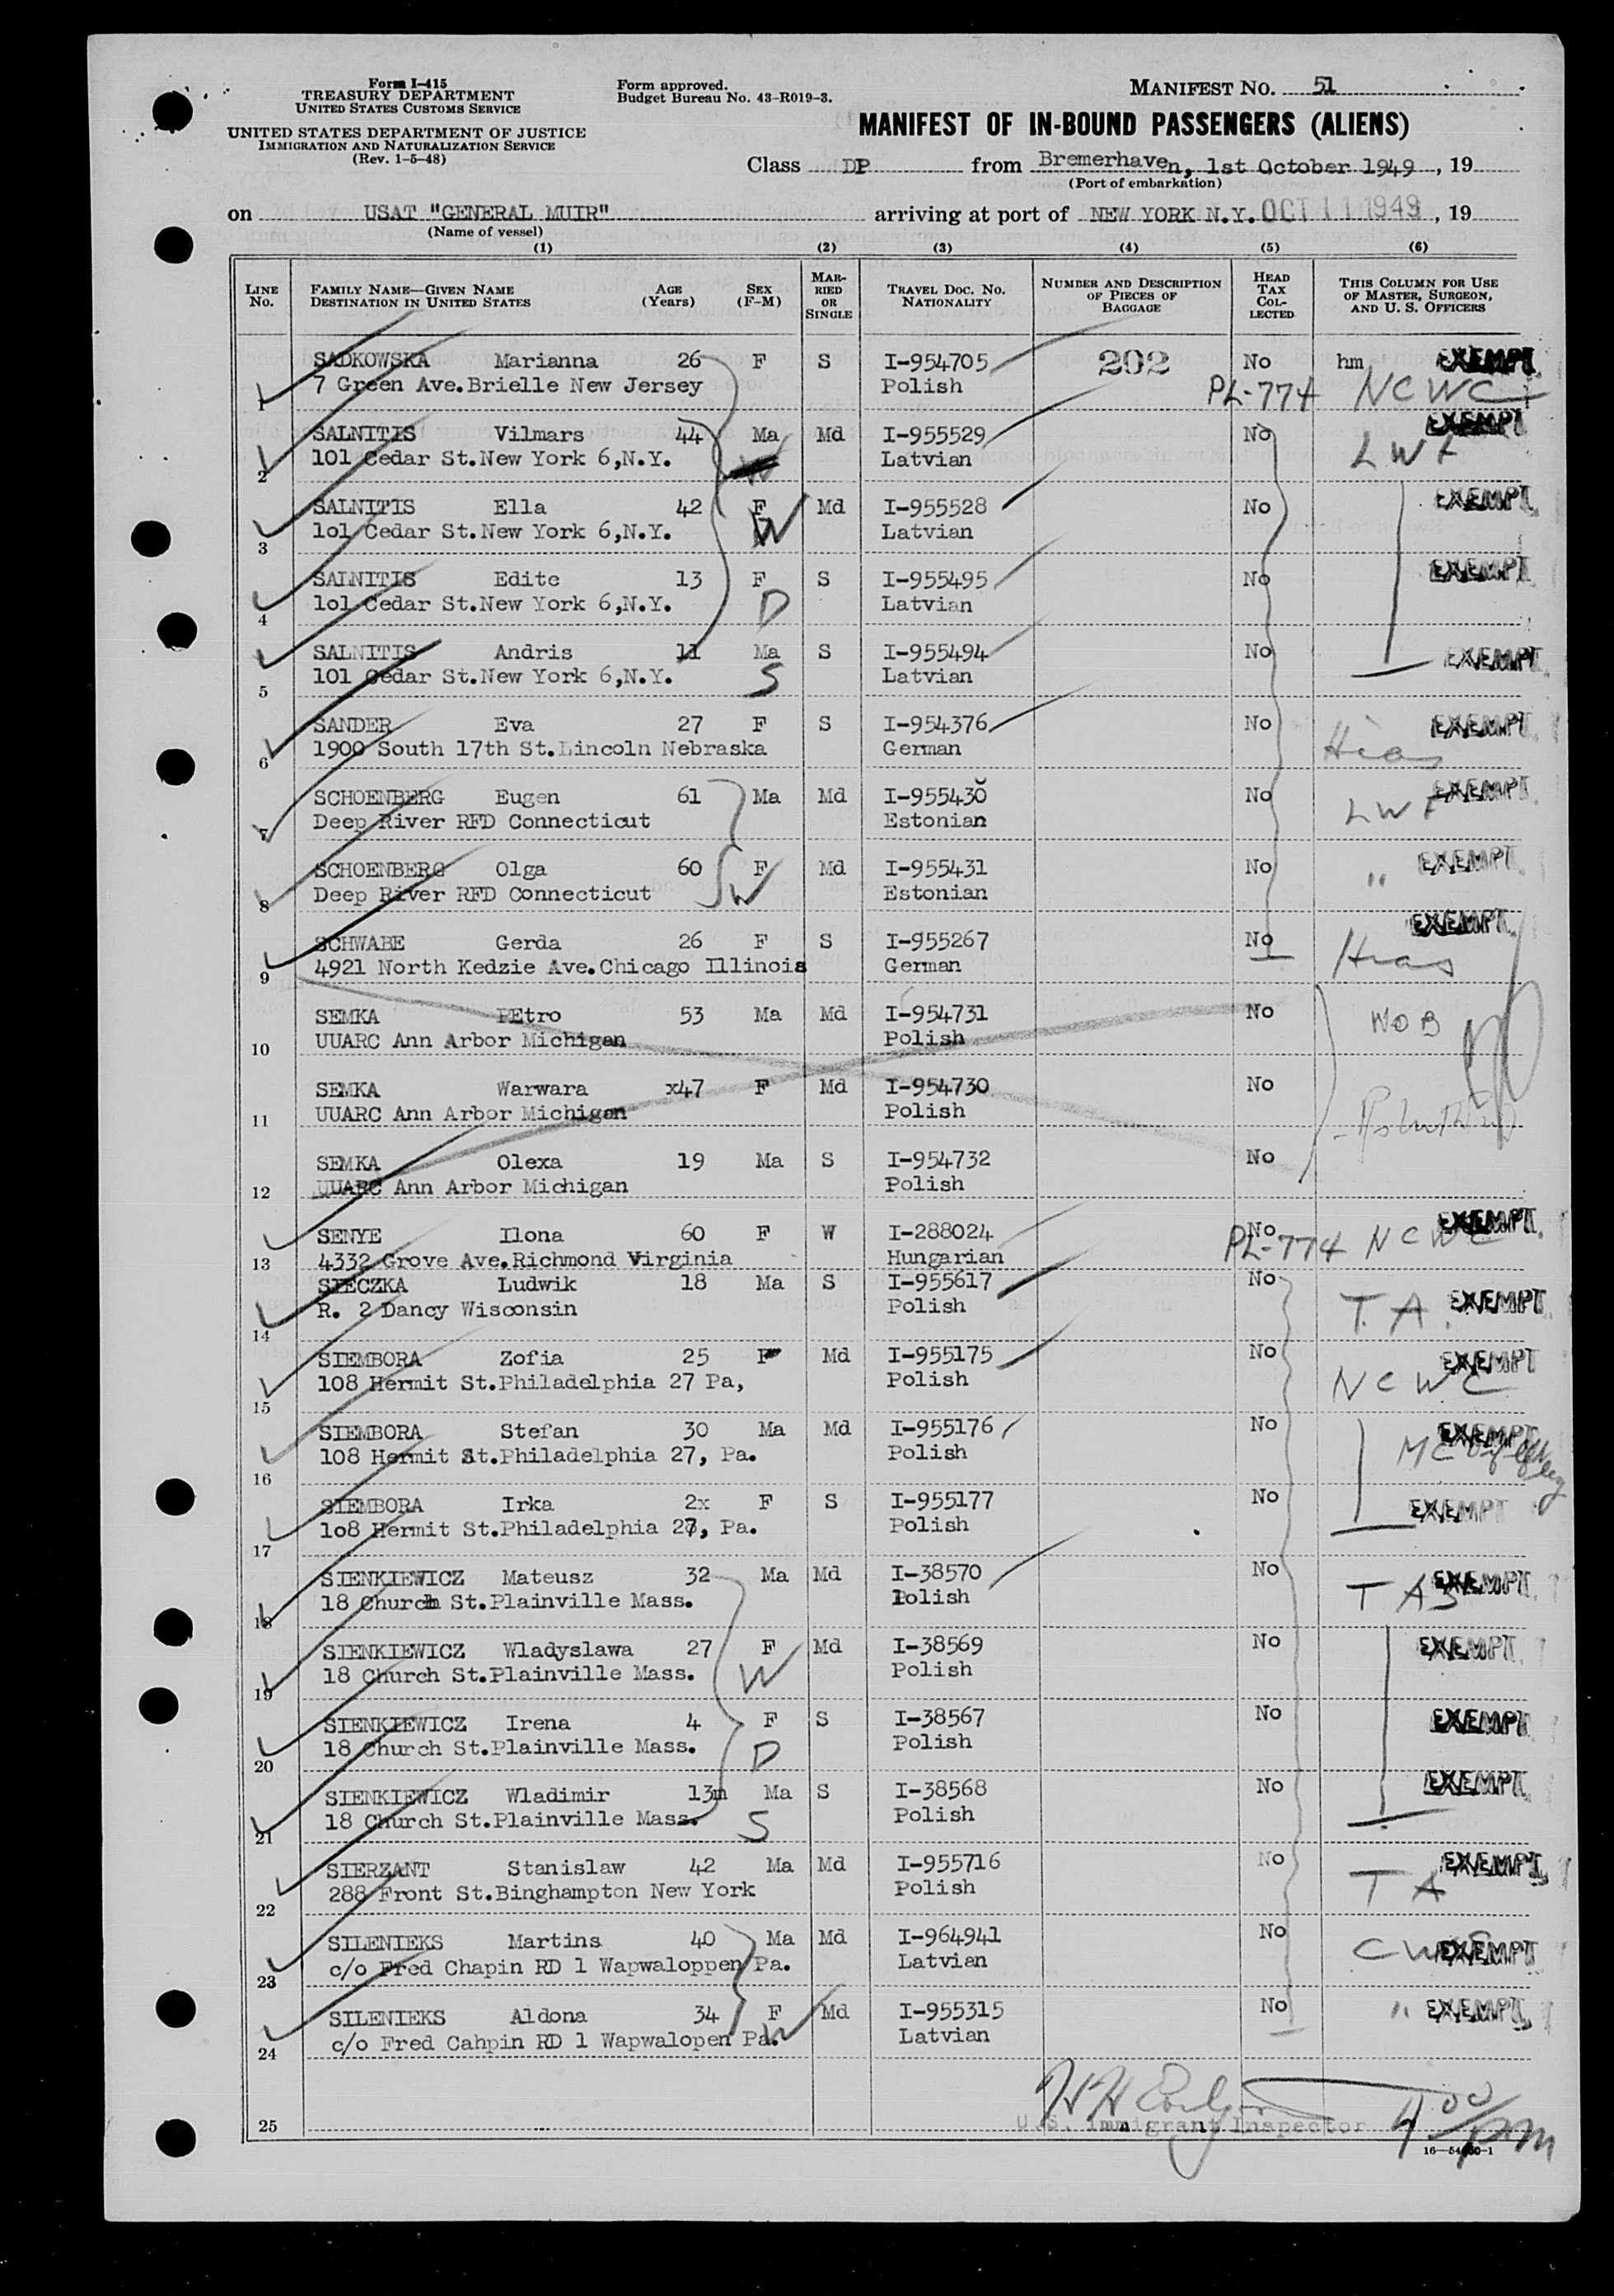 Form I-415
TREASURY DEPARTMENT
UNITED STATES CUSTOMS SERVICE
UNITED STATES DEPARTMENT OF JUSTICE
IMMIGRATION AND NATURALIZATION SERVICE
(Rev. 1-5-48)
Form approved.
Budget Bureau No. 43-R019-3.
MANIFEST NO. 51
MANIFEST OF IN-BOUND PASSENGERS (ALIENS)
Class DP from Bremerhaven, 1st October 1949, 19
(Port of embarkation)
on USAT "GENERAL MUIR" arriving at port of NEW YORK N.Y. OCT 11 1949, 19
(Name of vessel)
(1) (2) (3) (4) (5) (6)
LINE No. FAMILY NAME—GIVEN NAME DESTINATION IN UNITED STATES AGE (Years) SEX (F-M) MARRIED OR SINGLE TRAVEL DOC. NO. NATIONALITY NUMBER AND DESCRIPTION OF PIECES OF BAGGAGE HEAD TAX COLLECTED THIS COLUMN FOR USE OF MASTER, SURGEON, AND U. S. OFFICERS
SADKOWSKA Marianna 26 F S I-954705 202 No hm EXEMPT
1 7 Green Ave.Brielle New Jersey Polish PL-774 NCWC
SALNITIS Vilmars 44 Ma Md I-955529 No EXEMPT
2 101 Cedar St.New York 6,N.Y. Latvian LWF
SALNITIS Ella 42 F Md I-955528 No EXEMPT
3 lol Cedar St.New York 6,N.Y. W Latvian
SALNITIS Edite 13 F S I-955495 No EXEMPT
4 lol Cedar St.New York 6,N.Y. D Latvian
SALNITIS Andris 11 Ma S I-955494 No EXEMPT
5 101 Cedar St.New York 6,N.Y. S Latvian
SANDER Eva 27 F S I-954376 No EXEMPT
6 1900 South 17th St.Lincoln Nebraska German Hias
SCHOENBERG Eugen 61 Ma Md I-955430 No EXEMPT
7 Deep River RFD Connecticut Estonian LWF
SCHOENBERG Olga 60 F Md I-955431 No EXEMPT
8 Deep River RFD Connecticut W Estonian "
SCHWABE Gerda 26 F S I-955267 No EXEMPT
9 4921 North Kedzie Ave.Chicago Illinois German Hias
SEMKA PEtro 53 Ma Md I-954731 No NOB
10 UUARC Ann Arbor Michigan Polish
SEMKA Warwara x47 F Md I-954730 No
11 UUARC Ann Arbor Michigan Polish
SEMKA Olexa 19 Ma S I-954732 No
12 UUARC Ann Arbor Michigan Polish
SENYE Ilona 60 F W I-288024 No EXEMPT
13 4332 Grove Ave.Richmond Virginia Hungarian PL-774 NCWC
SIECZKA Ludwik 18 Ma S I-955617 No EXEMPT
14 R. 2 Dancy Wisconsin Polish T.A.
SIEMBORA Zofia 25 F Md I-955175 No EXEMPT
15 108 Hermit St.Philadelphia 27 Pa, Polish NCWC
SIEMBORA Stefan 30 Ma Md I-955176 No EXEMPT
16 108 Hermit St.Philadelphia 27, Pa. Polish
SIEMBORA Irka 2x F S I-955177 No EXEMPT
17 1o8 Hermit St.Philadelphia 27, Pa. Polish
SIENKIEWICZ Mateusz 32 Ma Md I-38570 No EXEMPT
18 18 Church St.Plainville Mass. Polish TAS
SIENKIEWICZ Wladyslawa 27 F Md I-38569 No EXEMPT
19 18 Church St.Plainville Mass. W Polish
SIENKIEWICZ Irena 4 F S I-38567 No EXEMPT
20 18 Church St.Plainville Mass. D Polish
SIENKIEWICZ Wladimir 13m Ma S I-38568 No EXEMPT
21 18 Church St.Plainville Mass. S Polish
SIERZANT Stanislaw 42 Ma Md I-955716 No EXEMPT
22 288 Front St.Binghampton New York Polish TA
SILENIEKS Martins 40 Ma Md I-964941 No EXEMPT
23 c/o Fred Chapin RD 1 Wapwaloppen Pa. Latvian
SILENIEKS Aldona 34 F Md I-955315 No " EXEMPT
24 c/o Fred Cahpin RD 1 Wapwalopen Pa. W Latvian
25 U.S. Immigrant Inspector 4 00 pm